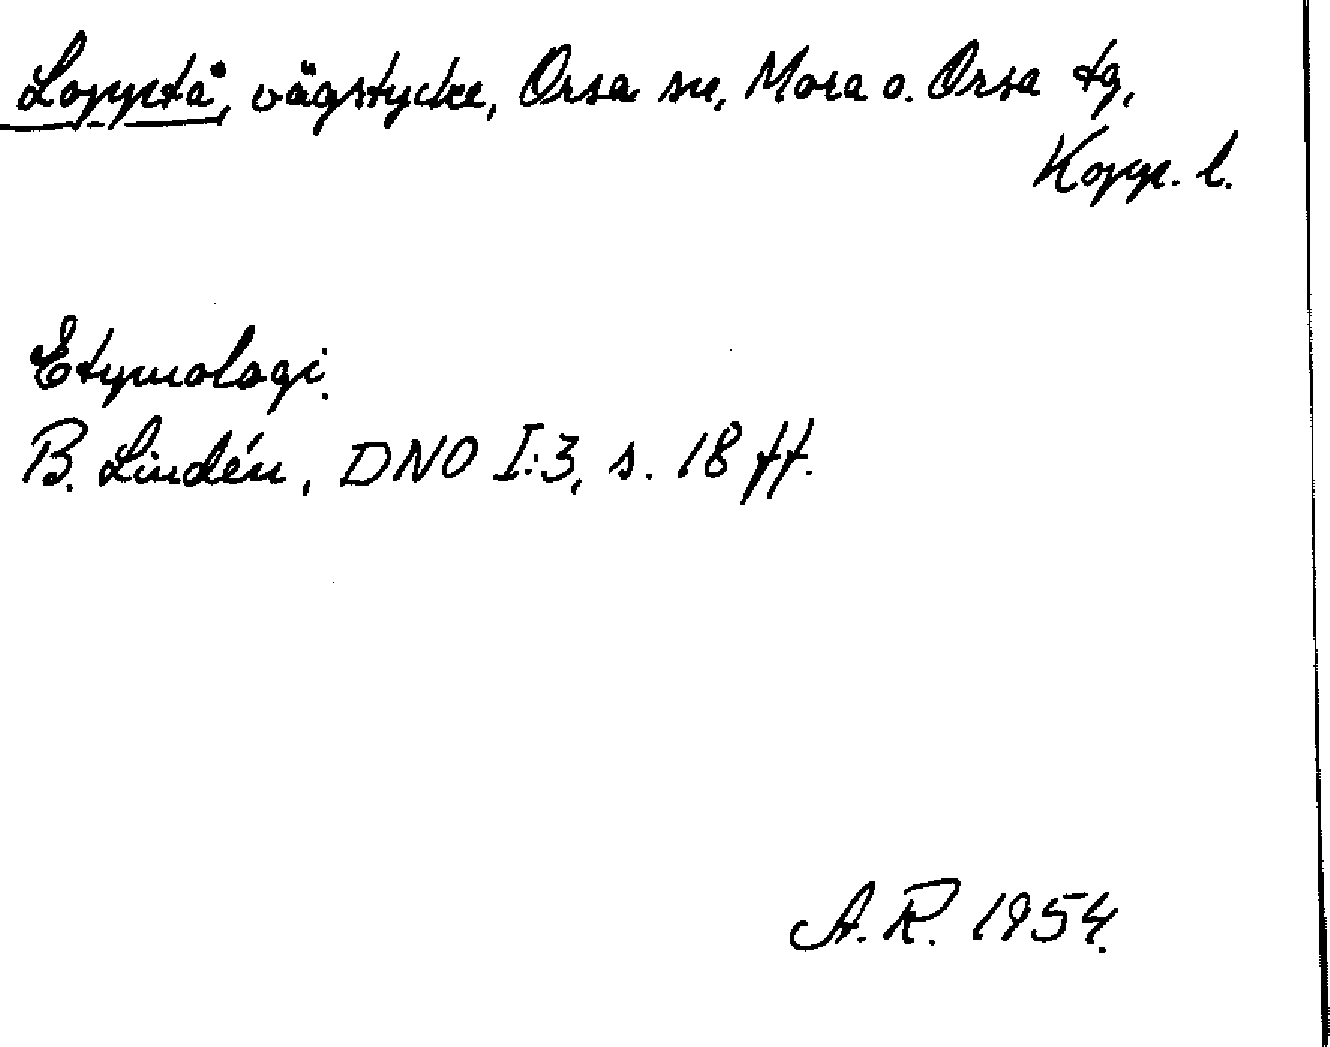 Lopptå, vägstycke, Orsa sn, Mora o. Orsa tg,
Kopp. l.
Etymologi.
B. Lindén, DNO I:3, s. 18 ff.
A. R. 1954.